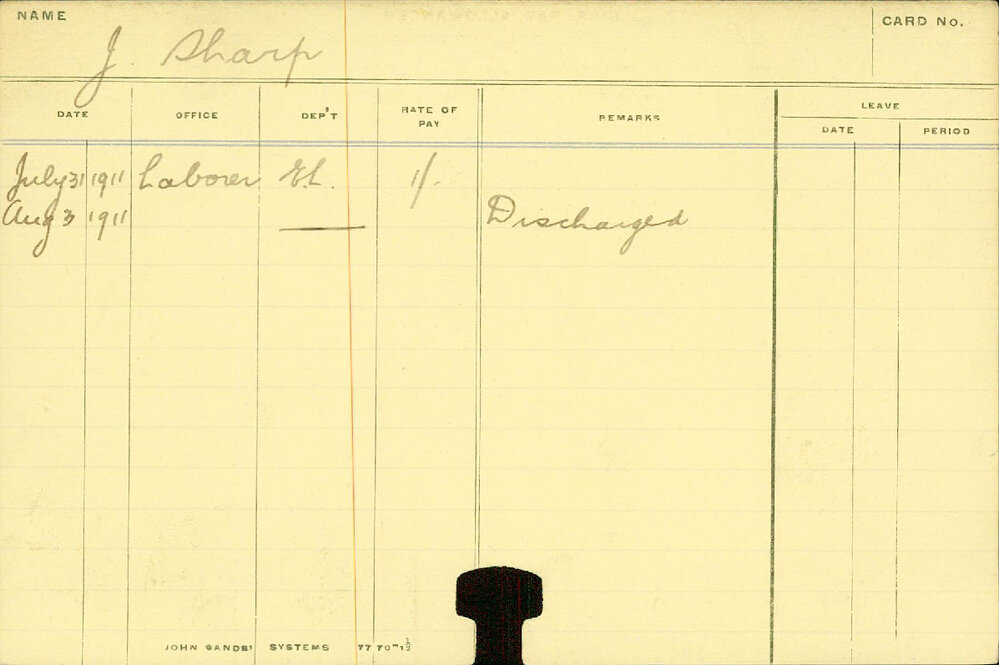 NAME
J. Sharp
CARD No.
DATE OFFICE DEP'T RATE OF PAY REMARKS LEAVE
DATE PERIOD
July 31 1911 Laborer E.L. 1/-
Aug 3 1911 Discharged
JOHN SANDS' SYSTEMS 77 70